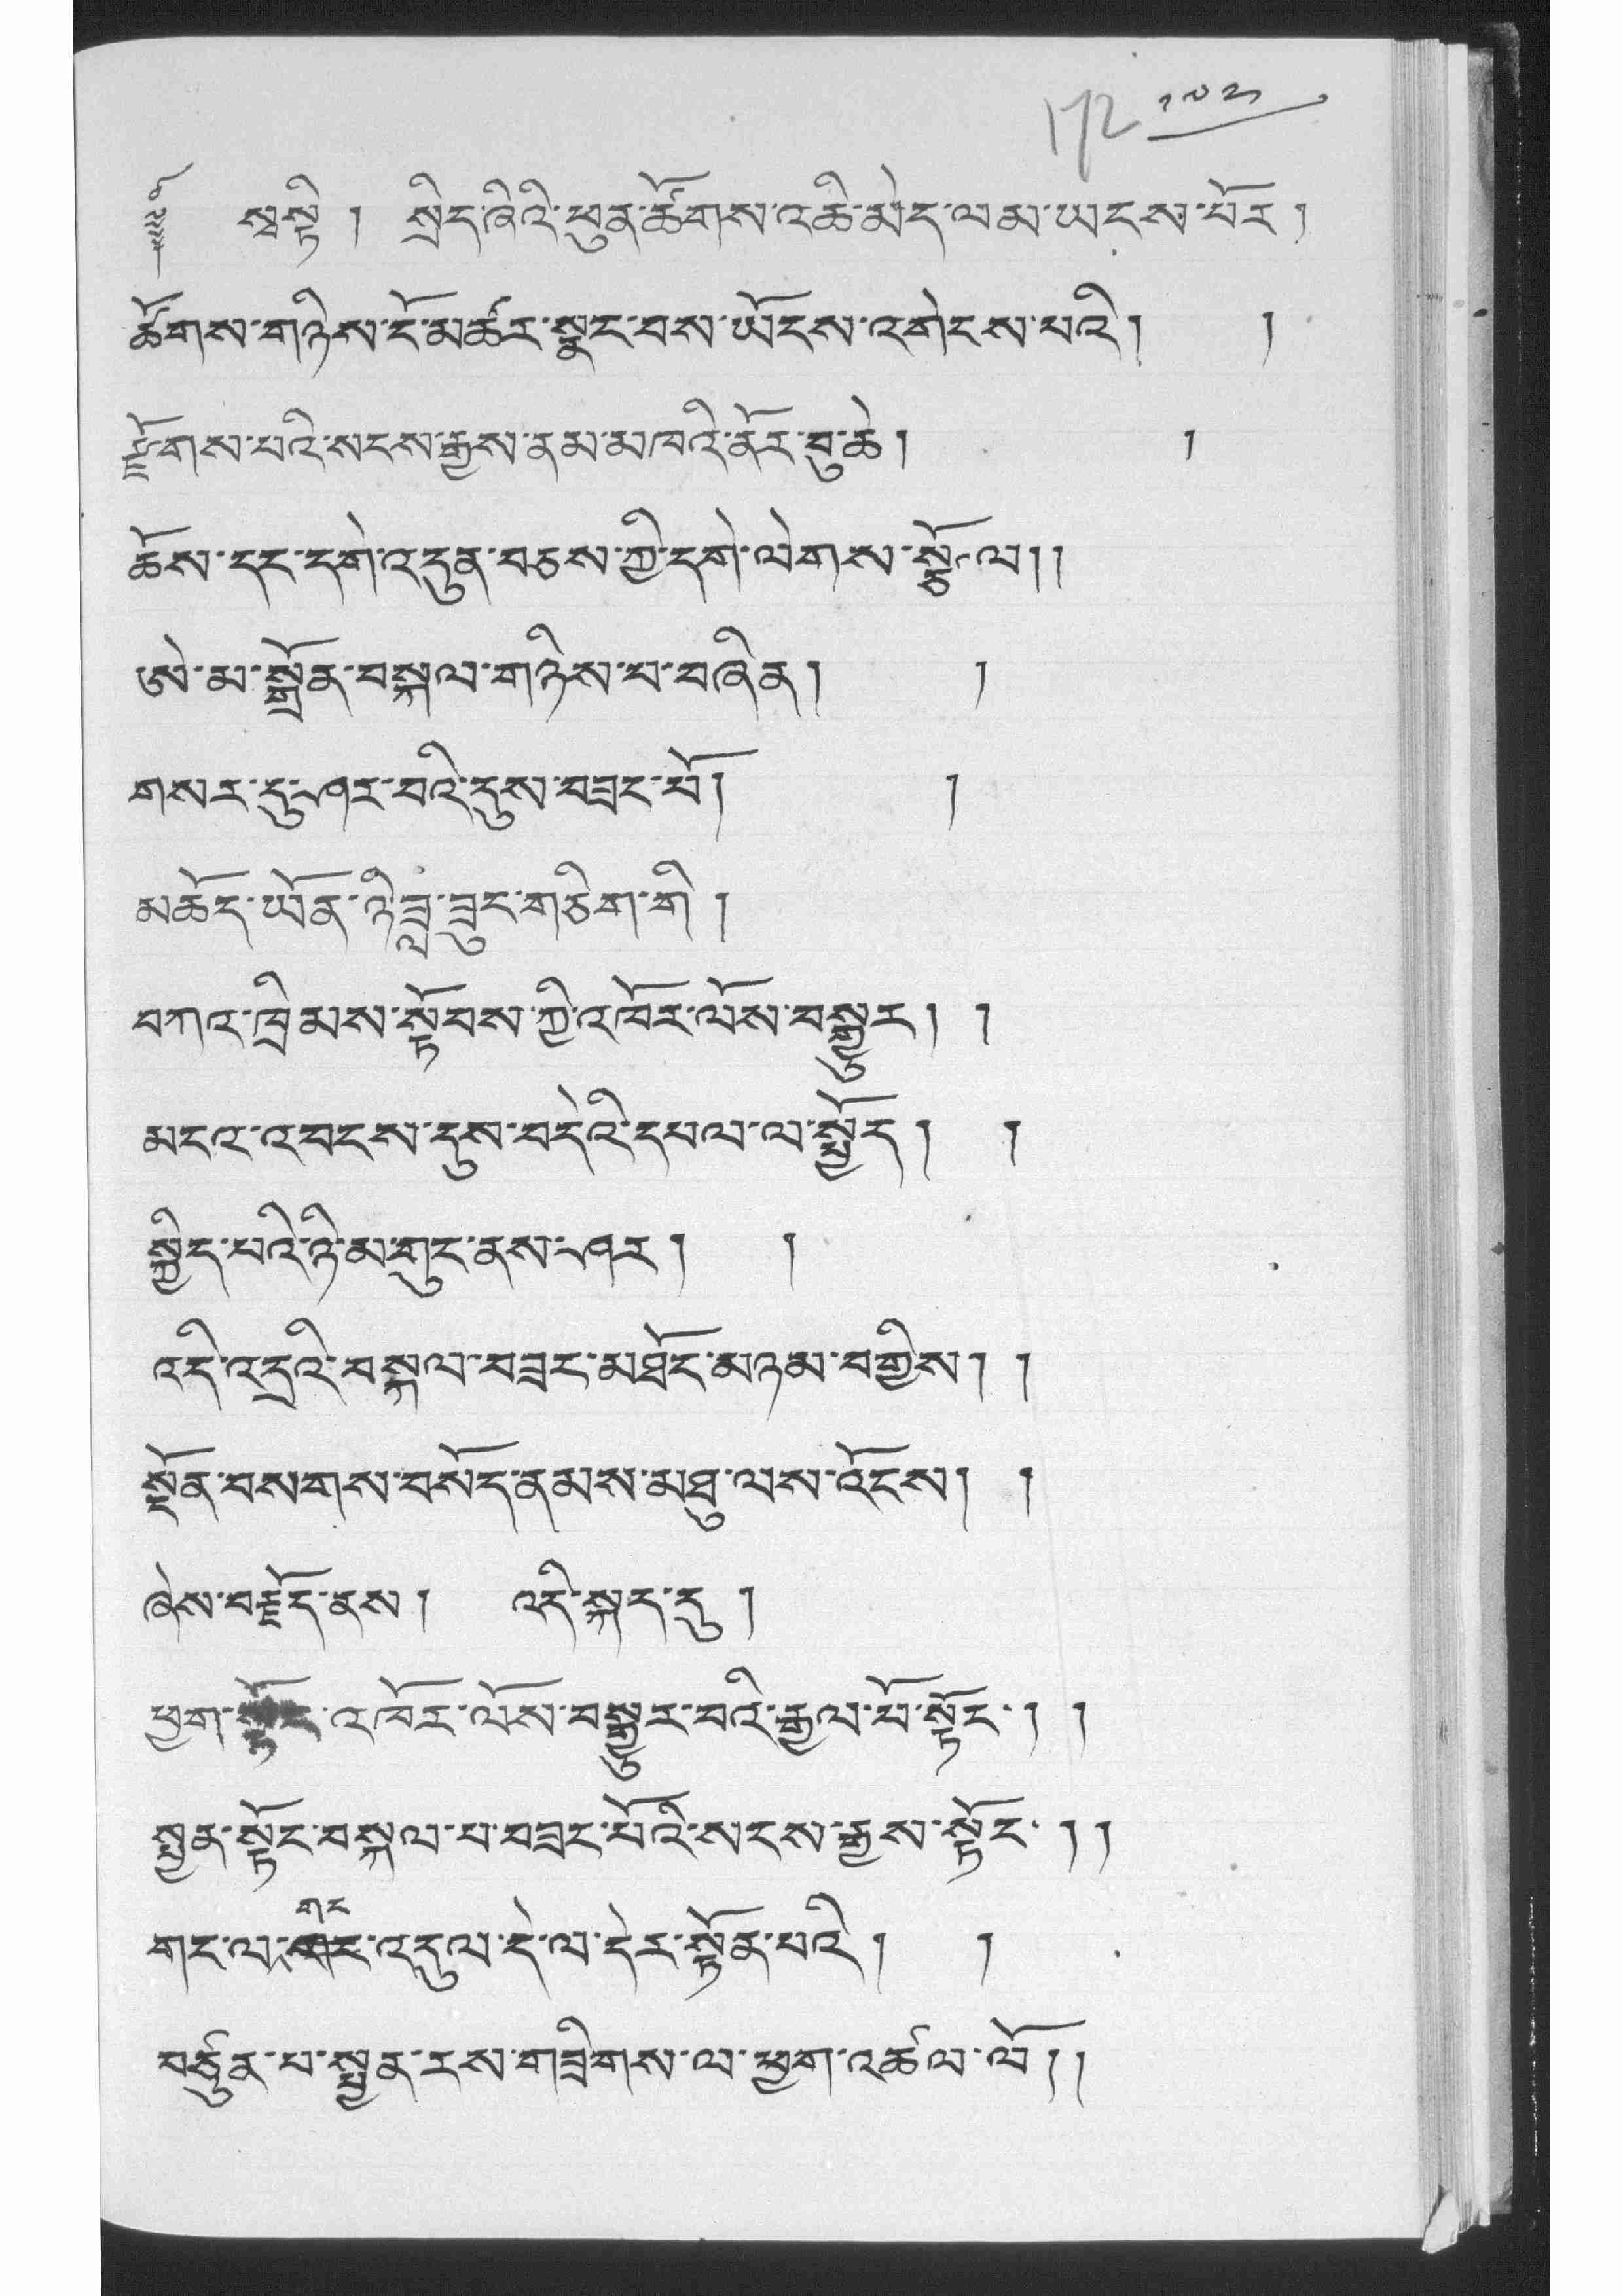 172 ༡༧༢
༄༅། སྭསྟི། སྲིད་ཞིའི་ཕུན་ཚོགས་འཆི་མེད་ལམ་ཡངས་པོར།
ཚོགས་གཉིས་ངོ་མཚར་སྣང་བས་ཡོངས་འགེངས་པའི། །
རྫོགས་པའི་སངས་རྒྱས་ནམ་མཁའི་ནོར་བུ་ཆེ། །
ཆོས་དང་དགེ་འདུན་བཅས་ཀྱི་དགེ་ལེགས་སྩོལ།།
ཨེ་མ་སྒྲོན་བསྐལ་གཉིས་པ་བཞིན། །
གསར་དུ་ཤར་བའི་དུས་བཟང་པོ། །
མཆོད་ཡོན་ཉི་ཟླ་ཟུང་གཅིག་གི །
བཀའ་ཁྲིམས་སྟོབས་ཀྱི་འཁོར་ལོས་བསྒྱུར། །
མངའ་འབངས་དུས་བདེའི་དཔལ་ལ་སྤྱོད། །
སྐྱིད་པའི་ཉི་མ་གུང་ནས་ཤར། །
འདི་འདྲའི་བསྐལ་བཟང་མཐོང་མཉམ་བགྱིས། །
སྔོན་བསགས་བསོད་ནམས་མཐུ་ལས་འོངས། །
ཞེས་བརྗོད་ནས། འདི་སྐད་དུ །
ཕྱག་སྟོང་འཁོར་ལོས་བསྒྱུར་བའི་རྒྱལ་པོ་སྟོང་། །
སྤྱན་སྟོང་བསྐལ་པ་བཟང་པོའི་སངས་རྒྱས་སྟོང་།།
གང་ལ་གང་འདུལ་དེ་ལ་དེར་སྟོན་པའི། །
བཙུན་པ་སྤྱན་རས་གཟིགས་ལ་ཕྱག་འཚལ་ལོ།།